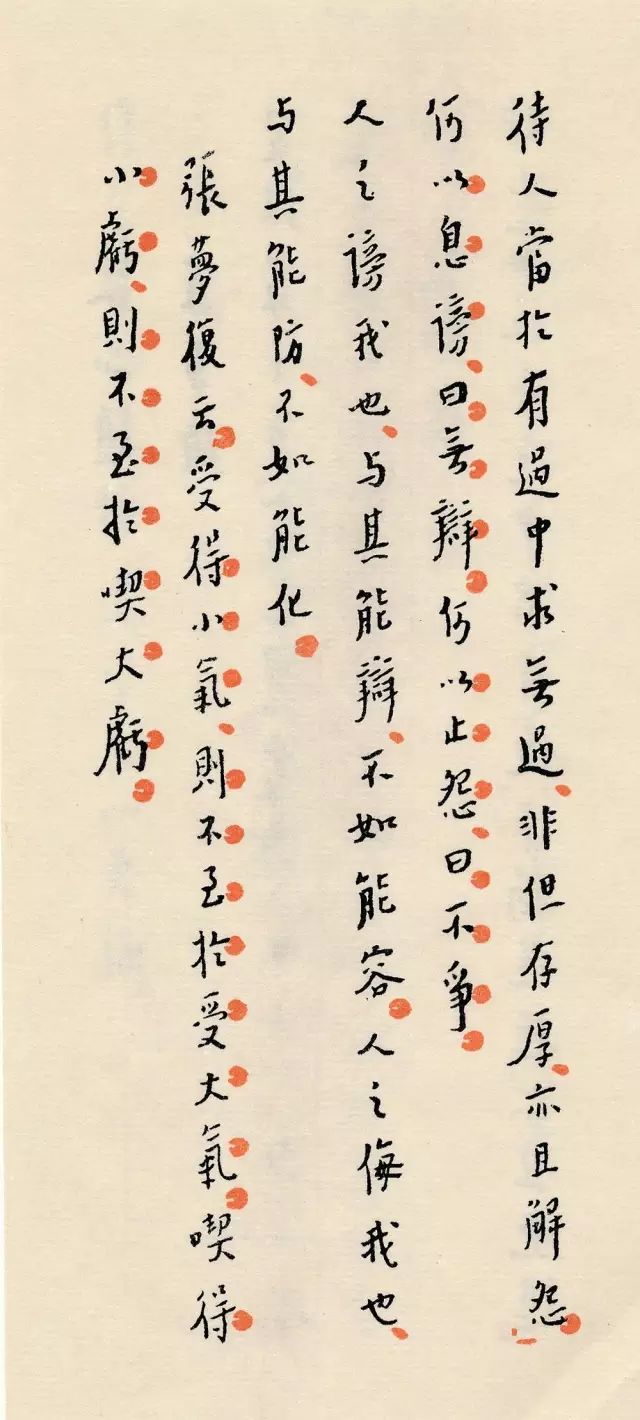 待人當於有過中求無過、非但存厚、亦且解怨
何以息謗、曰無辯何以止怨、曰不爭
人之謗我也、与其能辯、不如能容人之侮我也、
与其能防、不如能化
張夢復云受得小氣、則不至於受大氣喫得
小虧、則不至於喫大虧